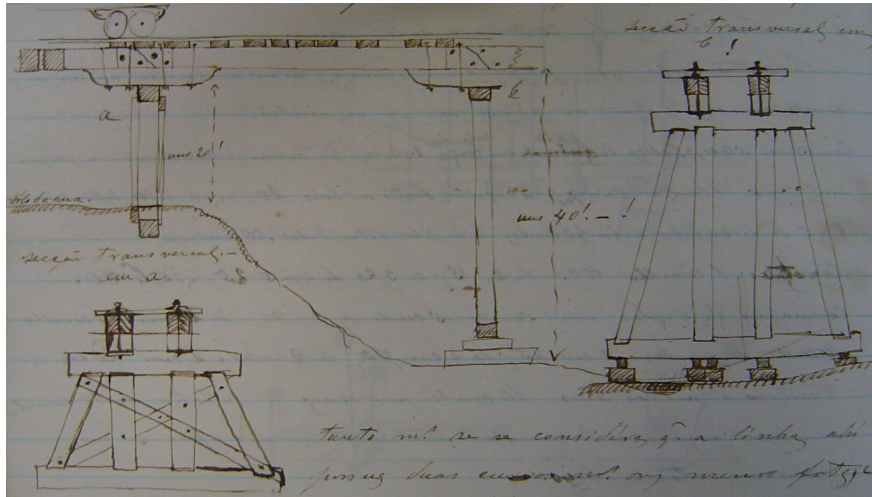 secção transversal em
b!
a
b
uns 20'!
uns 40'! — !
secção transversal. —
em a
tanto ms. se se considéra q. a linha ahi
possue duas menos